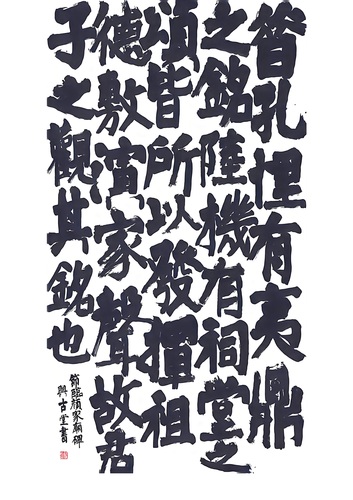 昔孔悝有夷鼎
之銘陸機有祠堂之
頌皆所以發揮祖
德敷演家聲故君
子之觀其銘也
節臨顏家廟碑
古堂書